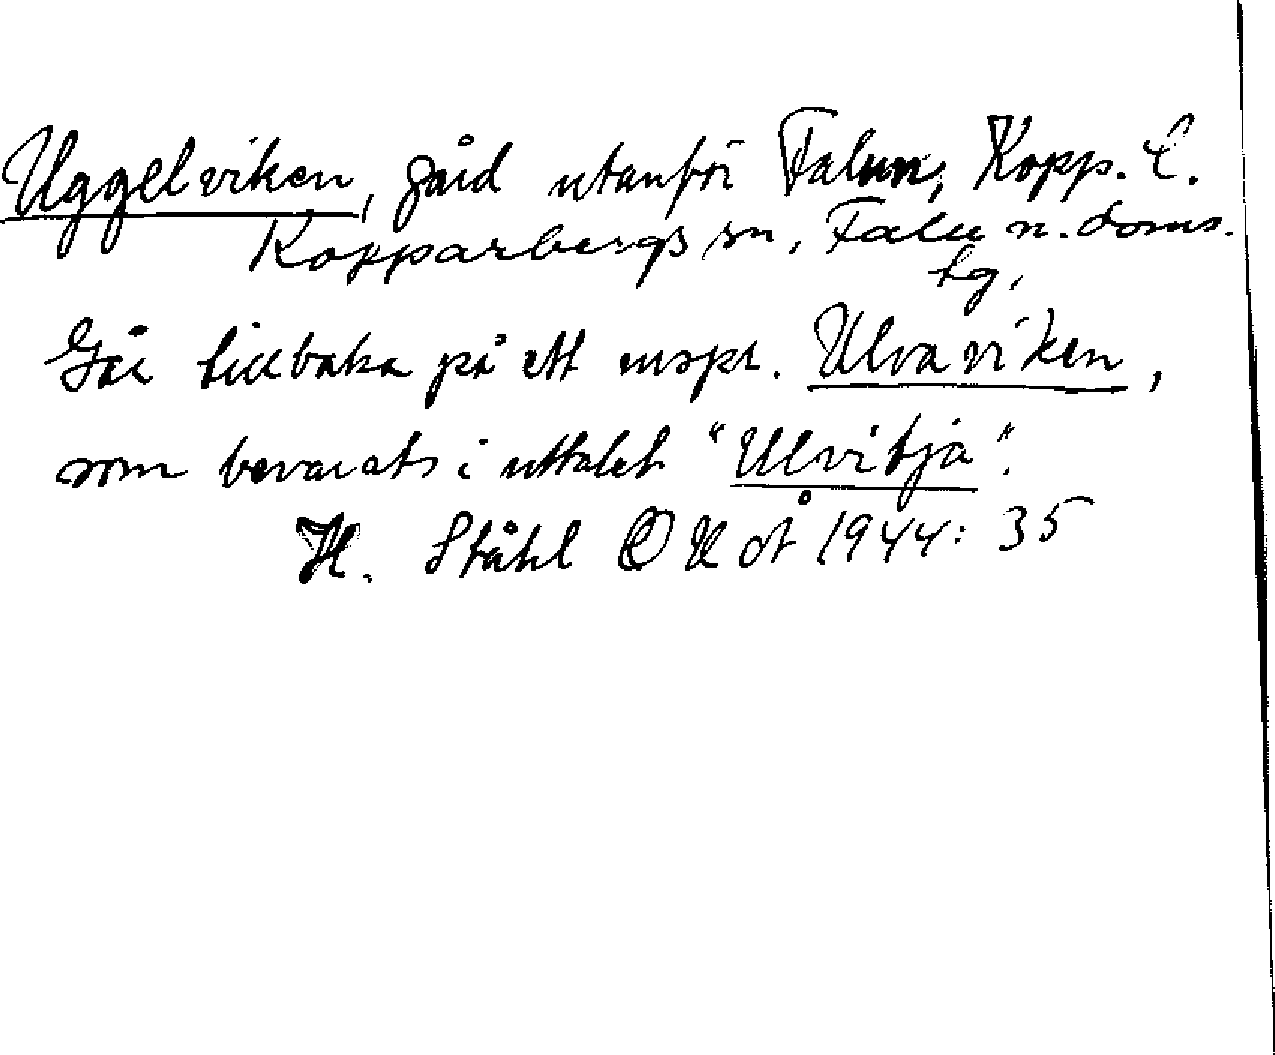 Uggelviken, gård utanför Falun, Kopp. l.
Kopparbergs sn, Falu n. doms.
hg,
Går tillbaka på ett urspr. Ulvaviken,
som bevarats i uttalet "Ulvitja".
H. Ståhl OUoÅ 1944: 35